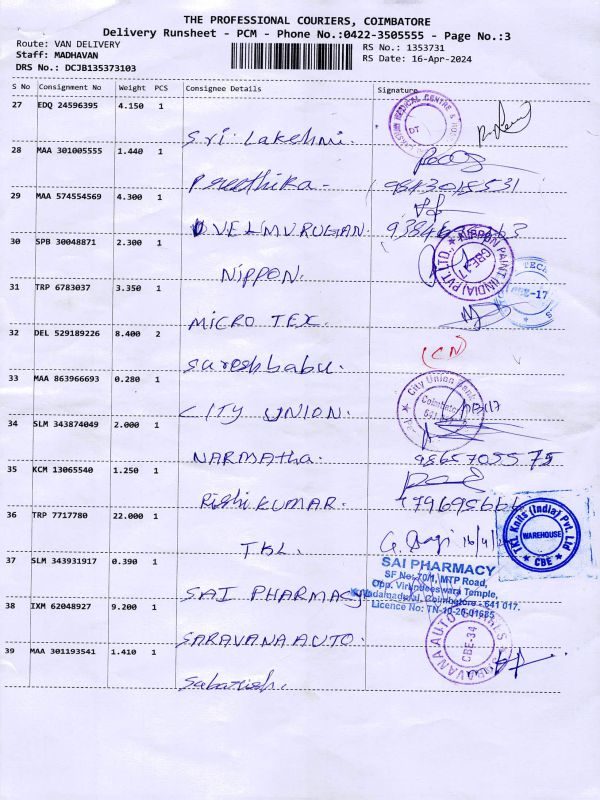 THE PROFESSIONAL COURIERS, COIMBATORE
Delivery Runsheet - PCM - Phone No.:0422-3505555 - Page No.:3
Route: VAN DELIVERY RS No.: 1353731
Staff: MADHAVAN RS Date: 16-Apr-2024
DRS No.: DCJB135373103
S No Consignment No Weight PCS Consignee Details Signature
27 EDQ 24596395 4.150 1
Sri Lakshmi.
28 MAA 301005555 1.440 1
Preethika - 9843018531
29 MAA 574554569 4.300 1
VELMURUGAN.
30 SPB 30048871 2.300 1
NIPPON.
NIPPON PAINT (INDIA) PVT LTD., CBE-17
31 TRP 6783037 3.350 1
MICRO TEX.
32 DEL 529189226 8.400 2
Sureshbabu. (CN)
33 MAA 863966693 0.280 1
CITY UNION.
City Union Bank Coimbatore
34 SLM 343874049 2.000 1
NARMATha. 98657055 75
35 KCM 13065540 1.250 1
Rishi KUMAR.
36 TRP 7717780 22.000 1
TKL.
TKL Knits (India) Pvt. Ltd WAREHOUSE CBE
37 SLM 343931917 0.390 1
SAI PHARMACY
SAI PHARMACY
SF No: 70/1, MTP Road,
Opp. Virundeeswara Temple,
Vadamadurai, Coimbatore - 641 017.
Licence No: TN-10-20-01685
38 IXM 62048927 9.200 1
SARAVANA AUTO.
SARAVANA AUTO CBE-34
39 MAA 301193541 1.410 1
Sabarish.